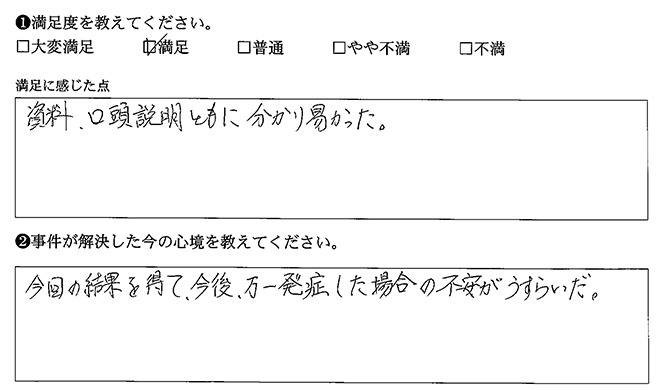 ❶満足度を教えてください。
□大変満足 ☑満足 □普通 □やや不満 □不満
満足に感じた点
資料、口頭説明ともに分かり易かった。
❷事件が解決した今の心境を教えてください。
今回の結果を得て、今後、万一発症した場合の不安がうすらいだ。